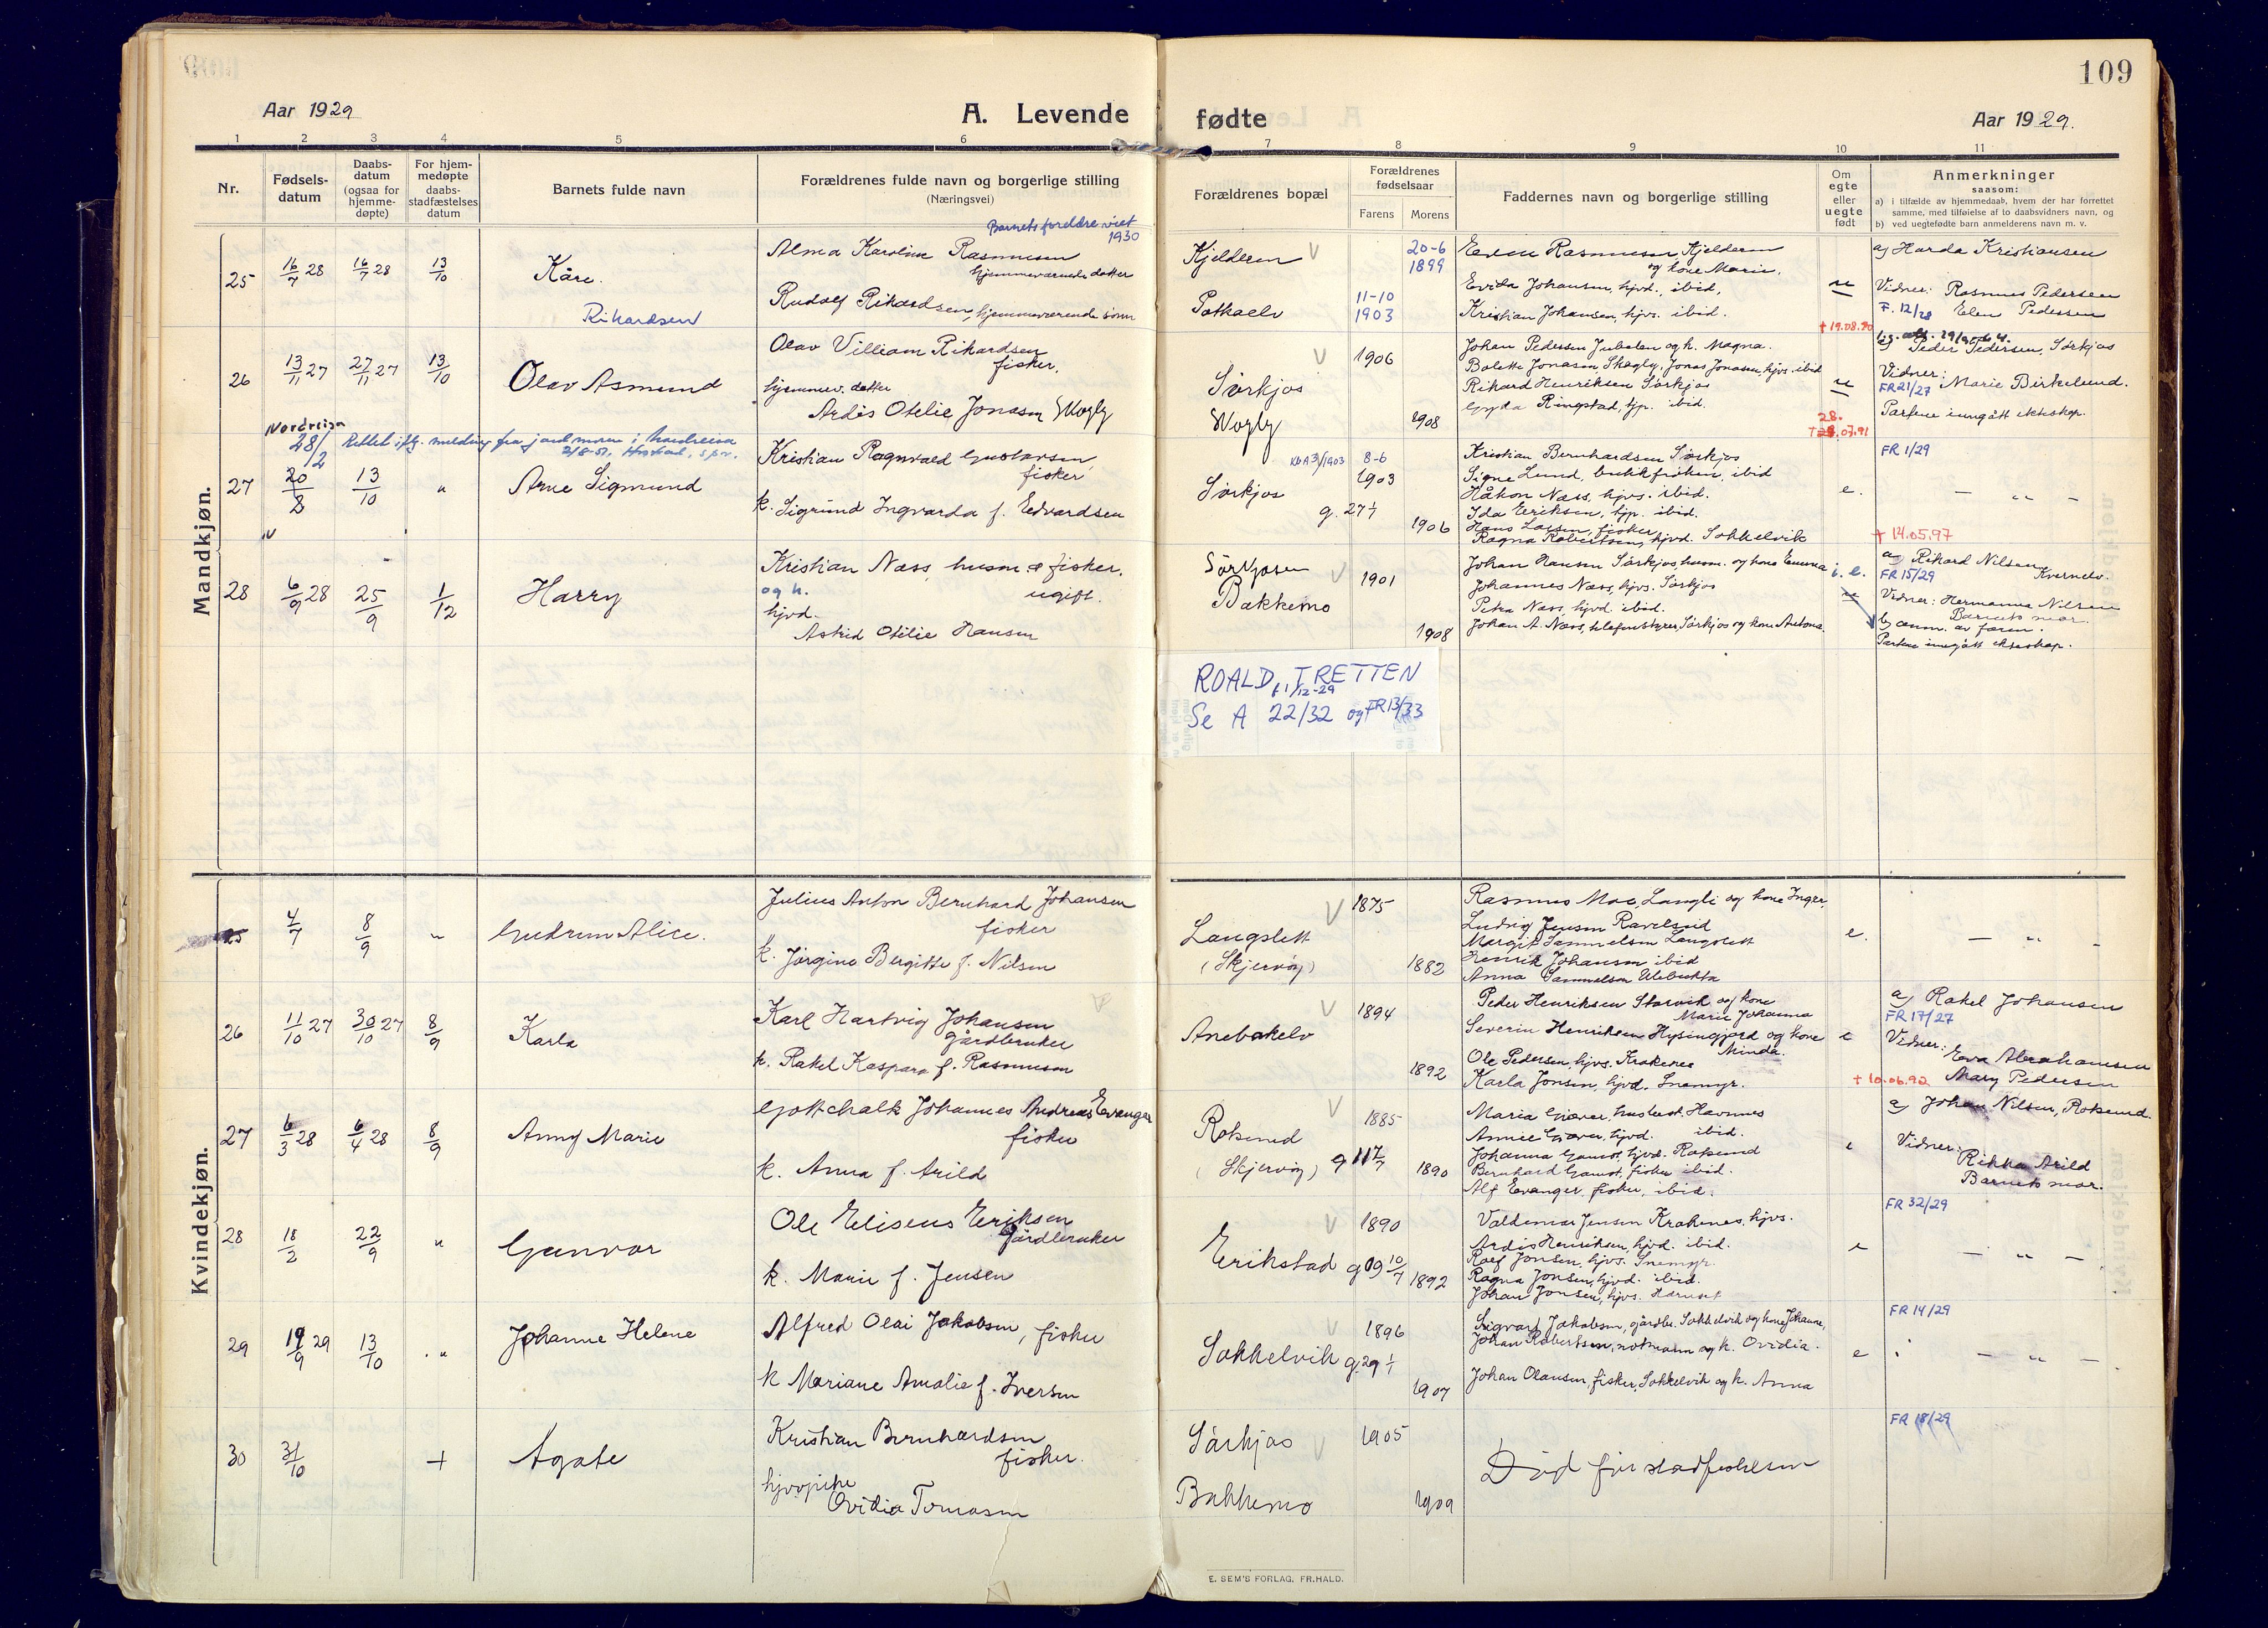 109
Aar 1929
A. Levende
fødte
Aar 1929.
1 2 3 4 5 6 7 8 9 10 11
Nr.
Fødsels-
datum
Daabs-
datum
(ogsaa for
hjemme-
døpte)
For hjem-
medøpte
daabs-
stadfæstelses
datum
Barnets fulde navn
Forældrenes fulde navn og borgerlige stilling
(Næringsvei)
Forældrenes bopæl
Forældrenes
fødselsaar
Farens Morens
Faddernes navn og borgerlige stilling
Om
egte
eller
uegte
født
Anmerkninger
saasom:
a) i tilfælde av hjemmedaab, hvem der har forrettet
samme, med tilføielse af to daabsvidners navn, og
b) ved uegtefødte barn anmelderens navn m. v.
Mandkjøn.
Barnets foreldre viet
1930
25 16/7 28 16/7 28 13/10 Kåre.
Rikardsen
Alma Karoline Rasmussen
hjemmeværende datter
Rudolf Rikardsen, hjemmeværende sønn
Kjelderen
20-6
1899
Potkaelv
11-10
1903
Edvin Rasmussen Kjelderen
og kone Marie.
Evida Johansen, hjvd., ibid.
Kristian Johansen, hjvs. ibid.
u
a) Harda Kristiansen
Vidner: Rasmus Pedersen
F. 12/28 Elen Pedersen
† 19.08.90
26 13/11 27 27/11 27 13/10 Olav Asmund
Olav Villiam Rikardsen
fisker,
hjemmev. datter
Ardis Otelie Jonasen Skogly
Sørkjos
1906
Skogly
1908
Johan Pedersen Jubelen og h. Magna.
Bolette Jonasen, Skogly. Jonas Jonasen, hjvs. ibid
Rikard Henriksen Sørkjos
Gyda Ringstad, tjp. ibid.
u
a) Peder Pedersen, Sørkjos
Vidner:
FR 21/27 Marie Birkelund.
Partene inngått ekteskap.
28.
† 28.07.91
Nordreisa
28/2 Rettet iflg. melding fra jordmoren i Nordreisa
2/8-51. s.pr.
27 20/8 13/10 " Arne Sigmund
Kristian Ragnvald Gustavsen,
fisker
k. Sigrund Ingvarda f. Edvardsen
Sørkjos
Kb A 3/1903 8-6
1903
g. 27 1/1
1906
Kristian Bernhardsen Sørkjos
Signe Lund, butikfrøken, ibid
Håkon Næss, hjvs. ibid.
Ida Eriksen, hjp. ibid.
Hans Larsen, fisker
Ragna Robertsen, hjvd. Sokkelvik
e.
FR 1/29
— " —
† 14.05.97
28 6/9 28 25/9 1/12 Harry
Kristian Næss, husm. & fisker.
og h. ugift.
hjvd.
Astrid Otilie Hansen
Sørkjosen
Bakkemo
1901
1908
Johan Hansen Sørkjos, husm. og kone Emma
Johannes Næss, hjvs. Sørkjos
Petra Næss, hjvd. ibid.
Johan A. Næss, telefonstyrer, Sørkjos og kone Antona.
i. e.
u
a) Rikard Nilsen
Kvernelv.
FR 15/29
Vidner: Hermanna Nilsen
Barnets mor.
b) anm. av faren.
Partene inngått ekteskap.
ROALD, TRETTEN
f 1/12-29
Se A 22/32 og FR 13/33
Kvindekjøn.
25 4/7 8/9 " Gudrun Alice.
Julius Anton Bernhard Johansen
fisker
k. Jørgine Bergitte f. Nilsen
Langslett
(Skjervøy)
1875
1882
Rasmus Moe, Langli og kone Inger,
Ludvig Jensen Ravelseid
Margit Sammelsen Langslett
Henrik Johansen ibid
Anna Sammelsen Ulebukta
e.
— " —
26 11/10 27 30/10 27 8/9 Karla
Karl Hartvig Johansen
gårdbruker
k. Rakel Kaspara f. Rasmussen
Anebakelv
1894
1892
Peder Henriksen Storvik og kone
Marie Johanna
Severin Henriksen Hysingjord og kone
Minda.
Ole Pedersen, hjvs. Krakenes
Karla Jonsen, hjvd. Snemyr.
e
a) Rakel Johansen
FR 17/27
Vidner:
Eva Abrahamsen
Mary Pedersen
† 10.06.92
27 6/3 28 6/4 28 8/9 Anny Marie
Gottschalk Johannes Andreas Evanger
fisker
k. Anna f. Arild
Rotsund
(Skjervøy)
1885
g 11 7/7
1890
Maria Giæver, husbest. Havnnes
Annie Giæver, hjvd. ibid.
Johanna Gamst, hjvd. Rotsund
Bernhard Gamst, fisker ibid.
Alf Evanger, fisker, ibid.
e
a) Johan Nilsen, Rotsund.
Vidner:
Rikka Arild
Barnets mor.
28 18/2 22/9 " Gunvor
Ole Eliseus Eriksen
gårdbruker
k. Marie f. Jensen
Erikstad
1890
g 09 10/7
1892
Valdemar Jensen Krakenes, hjvs.
Ardis Henriksen, hjvd. ibid.
Rolf Jonsen, hjvs. Snemyr.
Ragna Jonsen, hjvd. ibid.
Johan Jonsen, hjvs.
e
FR 32/29
— " —
29 19/9 29 13/10 " Johanne Helene
Alfred Olai Jakobsen, fisker
k Mariane Amalie f. Iversen
Sokkelvik
1896
g. 29 1/1
1907
Sigvart Jakobsen, gårdbr. Sokkelvik og kone Johanne,
Johan Robertsen, notmann og k. Ovidia.
Johan Olausen, fisker, Sokkelvik og k. Anna
e
FR 14/29
— " —
30 31/10 + Agate
Kristian Bernhardsen
fisker.
hjvpike
Ovidia Tomasen
Sørkjos
1905
Bakkemo
1909
Død før stadfestelsen
FR 18/29
E. SEM'S FORLAG. FR.HALD.